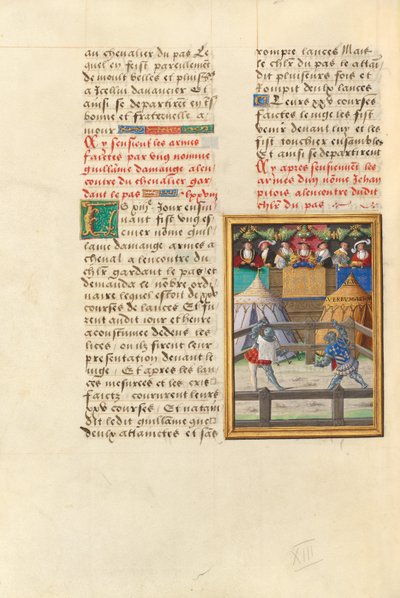 au chevalier du pas Le
quel en feist pareillement
de moult belles et plusrs
a Icellui davancier Et
ainsi se departirent en
bonne et fraternelle a
mour
Cy sensieut les armes
faictes par ung nomme
guillame damange alen
contre du chevalier gar
dant le pas
Le xiije Jour ensui
vant fist ung es
cuier nomme guil
lame damange armes a
cheval a lencontre du
chlr gardant le pas et
demanda le nobre ordi
naire lequel estoit de xxv
courses de lances Et fu
rent audit jour et heure
acoustumee dedens les
lices ou ilz firent leur
presentation devant le
iuge Et apres les lan
ces mesurees et les cris
faictz coururent leurs
xxv courses Et natain
dit ledit guillame que
deux attaintes et sans
rompre lances Mais
le chlr du pas le attai
dit plusieurs fois et
rompit deulx lances
Leurs xxv courses
faictes le iuge les fist
venir devant luy et les
fist touchier ensamble
Et ainsi se departirent
Cy apres sensieuvent les
armes dun nome Jehan
pitois alencontre dudit
chlr du pas
XIII